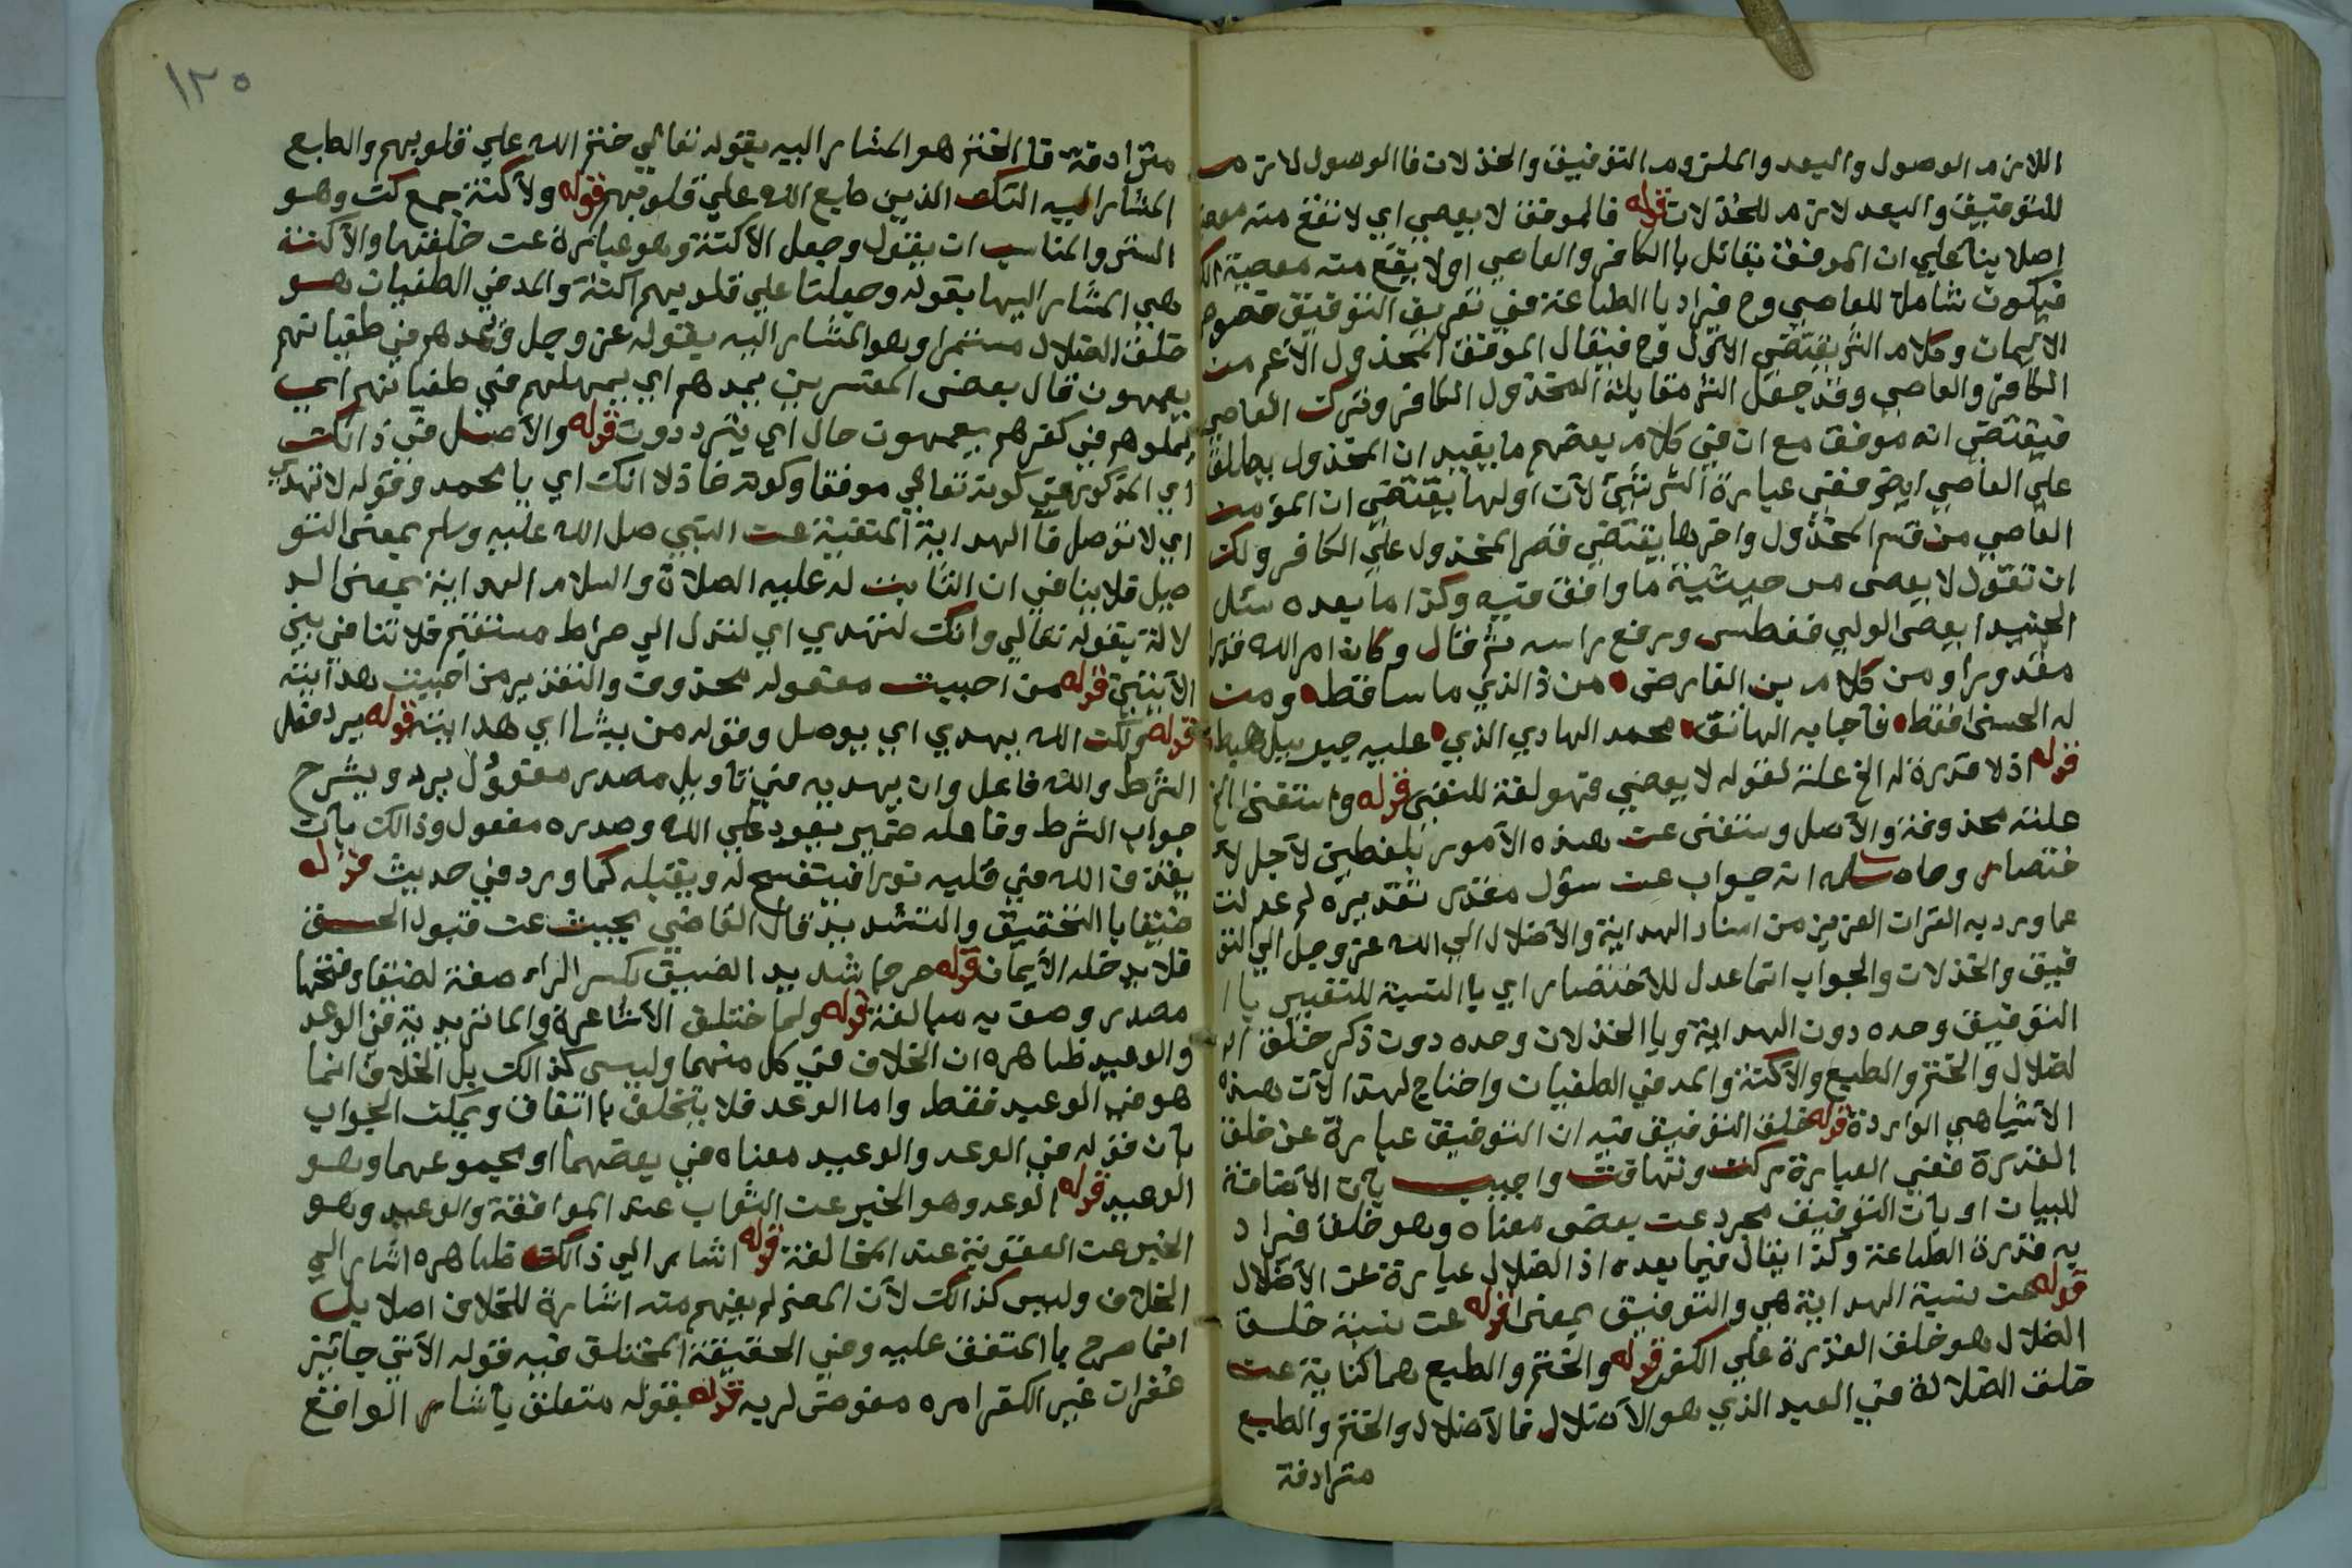 اللازم الوصول والبعد والملزوم التوفيق والخذلان فاالوصول لازم
للتوفيق والبعد لازم للخذلان قوله فالموفق لا يعصي اي لا تقع منه
اصلا بنا علي ان الموفق يقابل باالكافر والعاصي اولا يقع منه معصية
فيكون شاملا للعاصي وح فيراد باالطاعة في تعريف التوفيق خصوص
الايمان وكلام الش يقتضي الاول وح فيقال الموفق المخذول الأعم من
الكافر والعاصي وقد جعل الش مقابلة المخذول الكافر وترك العاصي
فيقتضي انه موفق مع ان في كلام بعضهم ما يفيد ان المخذول يطلق
علي العاصي ايض ففي عبارة الش شئ لأن اولها يقتضي ان المؤمن
العاصي من قسم المخذول واخرها يقتضي قصر المخذول علي الكافر ولك
ان تقول لا يعصى من حيثية ما وافق فيه وكذا ما بعده سئل
الجنيد ايعصى الولي فغطس ورفع راسه ثم قال وكان امر الله قدرا
مقدورا ومن كلام بن الفارضى من ذ الذي ما ساء قط ومن
له الحسنى فقط فأجابه الهاتق محمد الهادي الذي عليه جبريل هبط
قوله اذ لا قدرة له الخ علة لقوله لا يعصي فهو لغة للنفي قوله واستغنى الخ
علته محذوفة والأصل واستغنى عن هذه الأمور بلفظين لأجل لأ
ختصار وحاصله انه جواب عن سؤل مقدر تقديره لم عدلت
عما ورد به القران العزيز من اسناد الهداية والأضلال الي الله عز وجل الي التو
فيق والخذلان والجواب انما عدل للأختصار اي باالنسبة للتعبير با
التوفيق وحده دون الهداية وباالخذلان وحده دون ذكر خلق ا
لضلال والختم والطبع والأكنة والمد في الطغيان واحتاج لهذا لأن هذه
الاشيا هي الواردة قوله خلق التوفيق فيه ان التوفيق عبارة عن خلق
القدرة ففي العبارة ركت وتهافت واجيب بان الأضافة
للبيان او بأن التوفيق مجرد عن بعض معناه وهو خلق فيراد
به قدرة الطاعة وكذا يقال فيما بعده اذ الضلال عبارة عن الأضلال
قوله عن نسبة الهداية هي والتوفيق بمعنى قوله عن نسبة خلق
الضلال هو خلق القدرة علي الكفر قوله والختم والطبع هما كناية عن
خلق الضلالة في العبد الذي هو الأضلال فالأضلال والختم والطبع
مترادفة
١٢٥
مترادفة فاالختم هو المشار اليه بقوله تعالي ختم الله علي قلوبهم والطبع
المشار اليه اولئك الذين طبع الله علي قلوبهم قوله ولأكنة جمع كن وهو
الستر والمناسب ان يقول وجعل الأكنة وهو عبارة عن خلقها والأكنة
هي المشار اليها بقوله وجعلنا علي قلوبهم اكنة والمد في الطغيان هو
خلق الضلال مستمرا وهو المشار اليه بقوله عز وجل ونمدهم في طغيانهم
يعمهون قال بعض المفسرين يمدهم اي يمهلهم في طغيانهم اي
غلوهم في كفرهم يعمهون حال اي يترددون قوله والأصل في ذالك
اي المذكور في كونه تعالي موفقا وكونه خاذلا انك اي يا محمد وقوله لا تهدي
اي لا توصل فاالهداية المنفية عن النبي صل الله عليه وسلم بمعنى التو
صيل فلا ينافي ان الثابت له عليه الصلاة والسلام الهداية بمعنى الد
لالة بقوله تعالي وانك لتهدي اي لتدل الي صراط مستقيم فلا تنافي بين
الأيتين قوله من احببت مفعوله محذوف والتقدير من احببت هدايته
قوله ولكن الله يهدي اي يوصل وقوله من يشا اي هدايته قوله يرد فعل
الشرط والله فاعل وان يهديه في تاويل مصدر مفعول يرد ويشرح
جواب الشرط وفاعله ضمير يعود علي الله وصدره مفعول وذالك بأن
يقذف الله في قلبه نورا فينفسح له ويقبله كما ورد في حديث قوله
ضيقا باالتخفيق والتشديد قال القاضي بحيث عن قبول الحق
فلا يدخله الأيمان قوله حرجا شديد الضيق بكسر الراء صفة لضيقا وفتحها
مصدر وصف به مبالغة قوله ولما ختلف الأشاعرة والماتريدية في الوعد
والوعيد ظاهره ان الخلاف في كل منهما وليس كذالك بل الخلاف انما
هو في الوعيد فقط واما الوعد فلا يتخلف باتفاق ويمكن الجواب
بأن قوله في الوعد والوعيد معناه في بعضهما او مجموعهما وهو
الوعيد قوله الوعد وهو الخبر عن الثواب عند الموافقة والوعيد وهو
الخبر عن العقوبة عند المخالفة قوله اشار الي ذالك ظاهره اشار الي
الخلاف وليس كذالك لأن المص لم يفهم منه اشارة للخلاف اصلا بل
انما صرح باالمتفق عليه وفي الحقيقة المختلف فيه قوله الأتي جائيز
غفران غير الكفر امره مفوض لربه قوله بقوله متعلق بأشار الواقع